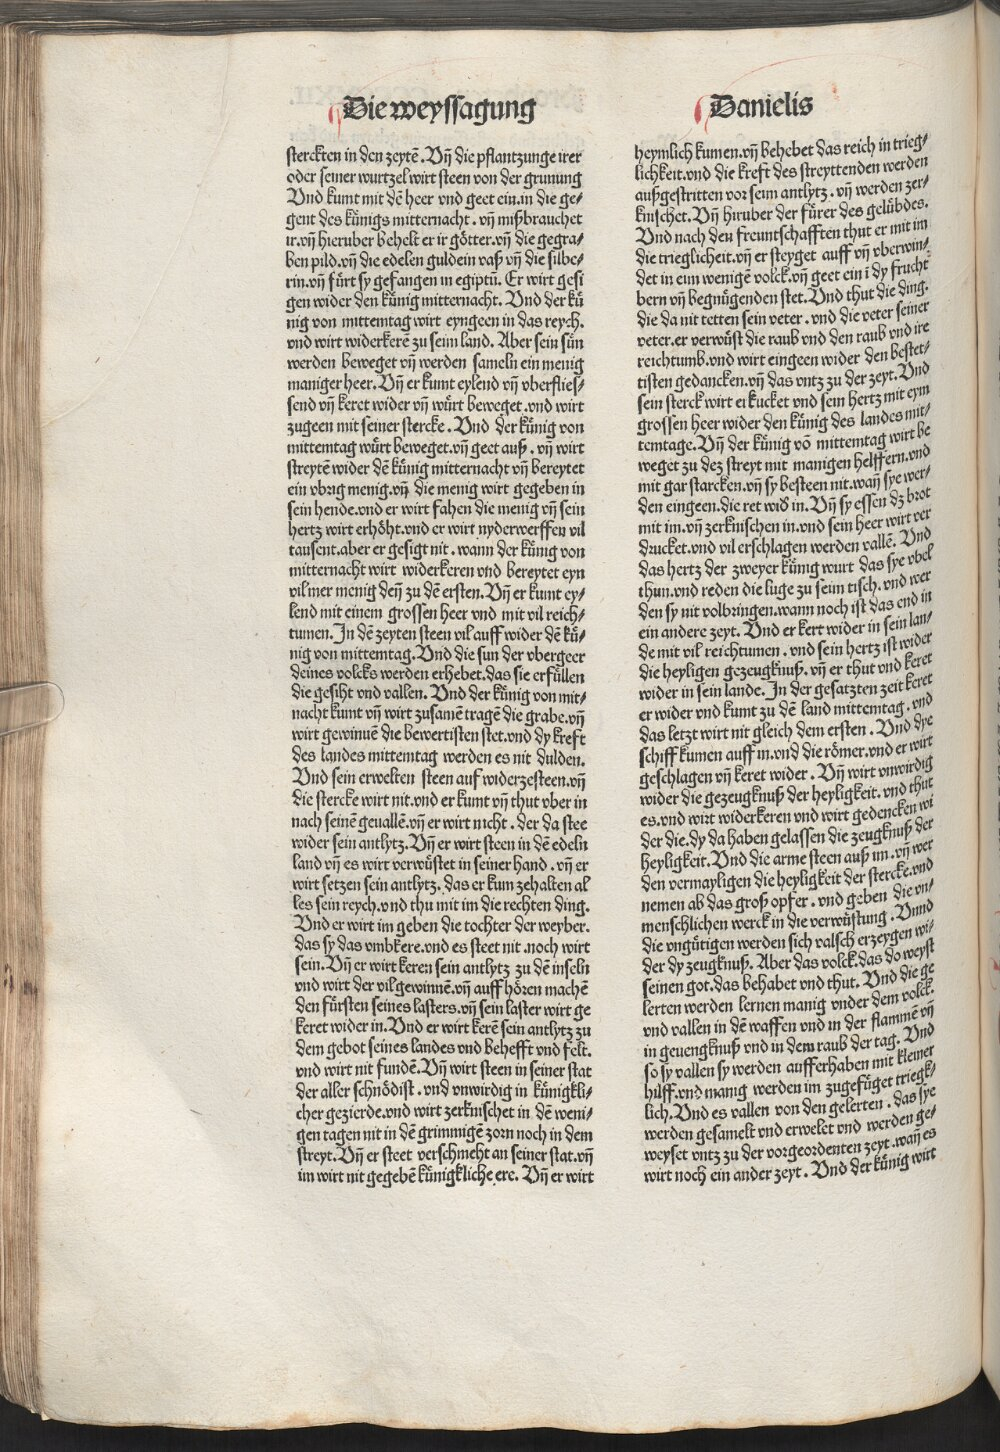 Die weyssagung
Danielis
sterckten in den zeytē. Vñ die pflantzunge irer
oder seiner wurtzel wirt steen von der grunung
Vnd kumt mit dē heer vnd geet ein. in die ge-
gent des kůnigs mitternacht. vñ mißbrauchet
ir. vñ hieruber behelt er ir götter. vñ die gegra-
ben pild. vñ die edelen guldein vaß vñ die silbe-
rin. vñ fůrt sy gefangen in egiptū. Er wirt gesi
gen wider den kůnig mitternacht. Vnd der ků
nig von mittemtag wirt eyngeen in das reych.
vnd wirt widerkerē zu seim land. Aber sein sůn
werden beweget vñ werden sameln ein menig
maniger heer. Vñ er kumt eylend vñ vberflies-
send vñ keret wider vñ wůrt beweget. vnd wirt
zugeen mit seiner stercke. Vnd der kůnig von
mittemtag wůrt beweget. vñ geet auß. vñ wirt
streytē wider dē kůnig mitternacht vñ bereytet
ein vbrig menig. vñ die menig wirt gegeben in
sein hende. vnd er wirt fahen die menig vñ sein
hertz wirt erhöht. vnd er wirt nyderwerffen vil
tausent. aber er gesigt nit. wann der kůnig von
mitternacht wirt widerkeren vnd bereytet eyn
vil mer menig deñ zu dē ersten. Vñ er kumt ey-
lend mit einem grossen heer vnd mit vil reich-
tumen. In dē zeyten steen vil auff wider dē ků-
nig von mittemtag. Vnd die sun der vbergeer
deines volcks werden erhebet. das sie erfüllen
die gesiht vnd vallen. Vnd der kůnig von mit-
nacht kunt vñ wirt zusamē tragē die grabe. vñ
wirt gewinnē die bewertisten stet. vnd dy kreft
des landes mittemtag werden es nit dulden.
Vnd sein erwelten steen auf widerzesteen. vñ
die stercke wirt nit. vnd er kumt vñ thut vber in
nach seinē geuallē. vñ er wirt nicht. der da stee
wider sein antlytz. Vñ er wirt steen in dē edeln
land vñ es wirt verwůstet in seiner hand. vñ er
wirt setzen sein antlytz. das er kum zehalten al
les sein reych. vnd thu mit im die rechten ding.
Vnd er wirt im geben die tochter der weyber.
das sy das vmbkere. vnd es steet nit. noch wirt
sein. Vñ er wirt keren sein antlytz zu dē inseln
vnd wirt der vil gewinnē. vñ auff hören machē
den fürsten seines lasters. vñ sein laster wirt ge
keret wider in. Vnd er wirt kerē sein antlytz zu
dem gebot seines landes vnd behefft vnd felt.
vnd wirt nit fundē. Vñ wirt steen in seiner stat
der aller schnödist. vnd vnwirdig in kůnigkli-
cher gezierde. vnd wirt zerknischet in dē weni-
gen tagen nit in dē grimmigē zorn noch in dem
streyt. Vñ er steet verschmeht an seiner stat. vñ
im wirt nit gegebē kůnigkliche ere. Vñ er wirt
heymlich kumen. vñ behebet das reich in trieg-
lichkeit. vnd die kreft des streyttenden werden
außgestritten vor seim antlytz. vñ werden zer-
knischet. Vñ hiruber der fůrer des gelůbdes.
Vnd nach den freuntschafften thut er mit im
die trieglicheit. vñ er steyget auff vñ vberwin-
det in eim wenigē volck. vñ geet ein ī dy frucht
bern vñ begnůgenden stet. Vnd thut die ding.
die da nit tetten sein veter. vnd die veter seiner
veter. er verwůst die raub vnd den raub vnd ire
reichtumb. vnd wirt eingeen wider den bestet-
tisten gedancken. vñ das vntz zu der zeyt. Vnd
sein sterck wirt erkucket vnd sein hertz mit eym
grossen heer wider den kůnig des landes mit-
temtage. Vñ der kůnig vō mittemtag wirt be
weget zu dez streyt mit manigen helffern. vnd
mit gar starcken. vñ sy besteen nit. wañ sye wer-
den eingeen. die ret wid in. Vñ sy essen dz brot
mit im. vñ zerknischen in. vnd sein heer wirt ver
drucket. vnd vil erschlagen werden vallē. Vnd
das hertz der zweyer kůnig wurt das sye vbel
thun. vnd reden die luge zu seim tisch. vnd wer
den sy nit volbringen. wann noch ist das end in
ein andere zeyt. Vnd er kert wider in sein lan-
de mit vil reichtumen. vnd sein hertz ist wider
die heyligen gezeugknuß. vñ er thut vnd keret
wider in sein lande. In der gesatzten zeit keret
er wider vnd kumt zu dē land mittemtag. vnd
das letzt wirt nit gleich dem ersten. Vnd dye
schiff kumen auff in. vnd die römer. vnd er wirt
geschlagen vñ keret wider. Vñ wirt vnwirdig
wider die gezeugknuß der heyligkeit. vnd thut
es. vnd wirt widerkeren vnd wirt gedencken wi
der die. dy da haben gelassen die zeugknuß der
heyligkeit. Vnd die arme steen auß im. vñ wer
den vermayligen die heyligkeit der stercke. vnd
nemen ab das groß opfer. vnd geben die vn-
menschlichen werck in die verwůstung. Vnnd
die vngütigen werden sich valsch erzeygen wi-
der dy zeugknuß. Aber das volck. das do weyst
seinen got. das behabet vnd thut. Vnd die ge
lerten werden lernen manig vnder dem volck.
vnd vallen in dē waffen vnd in der flammē vñ
in geuengknuß vnd in dem raub der tag. Vnd
so sy vallen sy werden aufferhaben mit kleiner
hilff. vnd manig werden im zugefüget triegk-
lich. Vnd es vallen von den gelerten. das sye
werden gesamelt vnd erwelet vnd werden ge-
weyset vntz zu der vorgeordenten zeyt. wañ es
wirt noch ein ander zeyt. Vnd der kůnig wirt